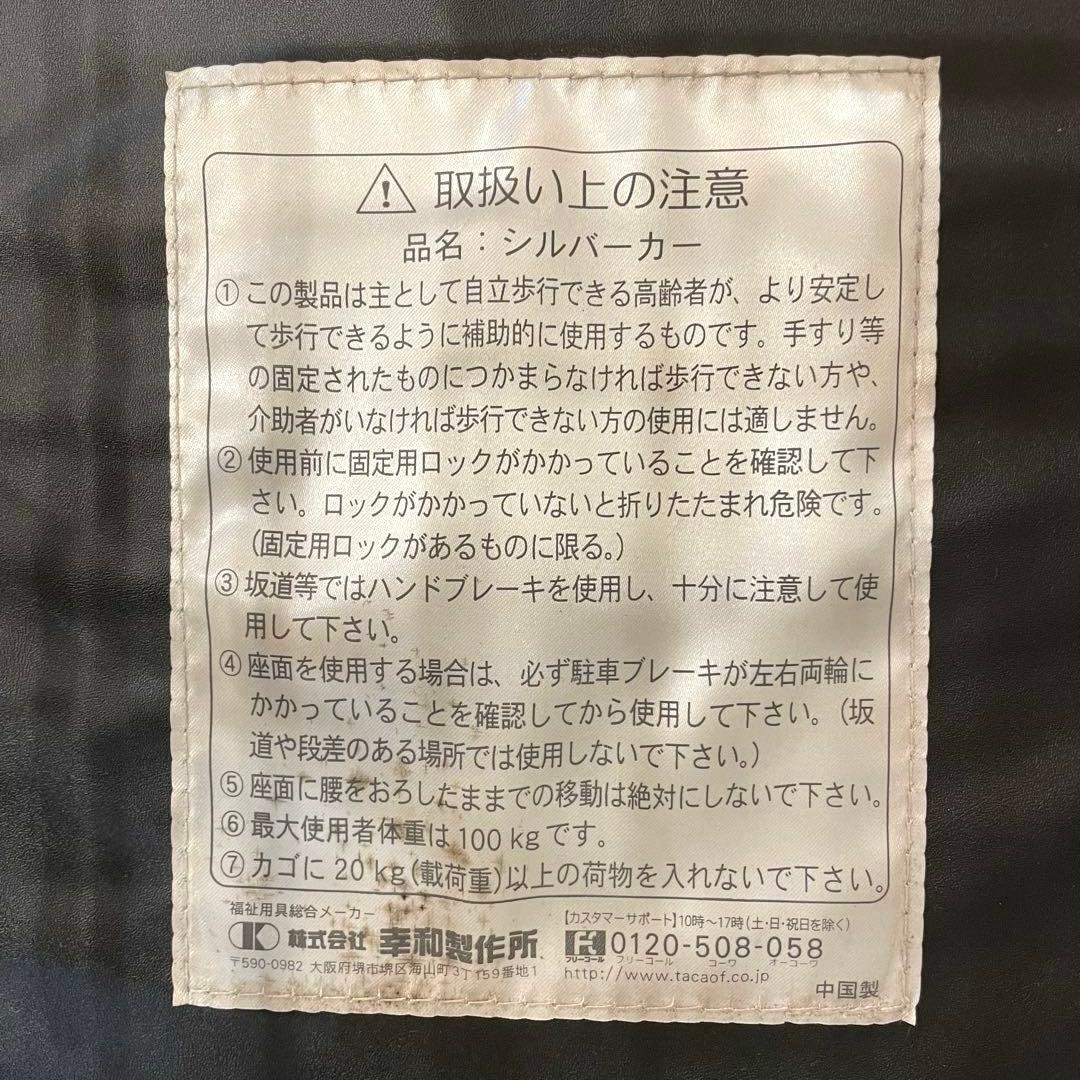 取扱い上の注意
品名：シルバーカー
①この製品は主として自立歩行できる高齢者が、より安定し
て歩行できるように補助的に使用するものです。手すり等
の固定されたものにつかまらなければ歩行できない方や、
介助者がいなければ歩行できない方の使用には適しません。
②使用前に固定用ロックがかかっていることを確認して下
さい。ロックがかかっていないと折りたたまれ危険です。
（固定用ロックがあるものに限る。）
③坂道等ではハンドブレーキを使用し、十分に注意して使
用して下さい。
④座面を使用する場合は、必ず駐車ブレーキが左右両輪に
かかっていることを確認してから使用して下さい。（坂
道や段差のある場所では使用しないで下さい。）
⑤座面に腰をおろしたままでの移動は絶対にしないで下さい。
⑥最大使用者体重は100kgです。
⑦カゴに20kg（載荷重）以上の荷物を入れないで下さい。
福祉用具総合メーカー
株式会社 幸和製作所
〒590-0982 大阪府堺市堺区海山町3丁159番地1
【カスタマーサポート】10時〜17時（土・日・祝日を除く）
フリーコール 0120-508-058
フリーコール コーワ オーコーワ
http://www.tacaof.co.jp
中国製